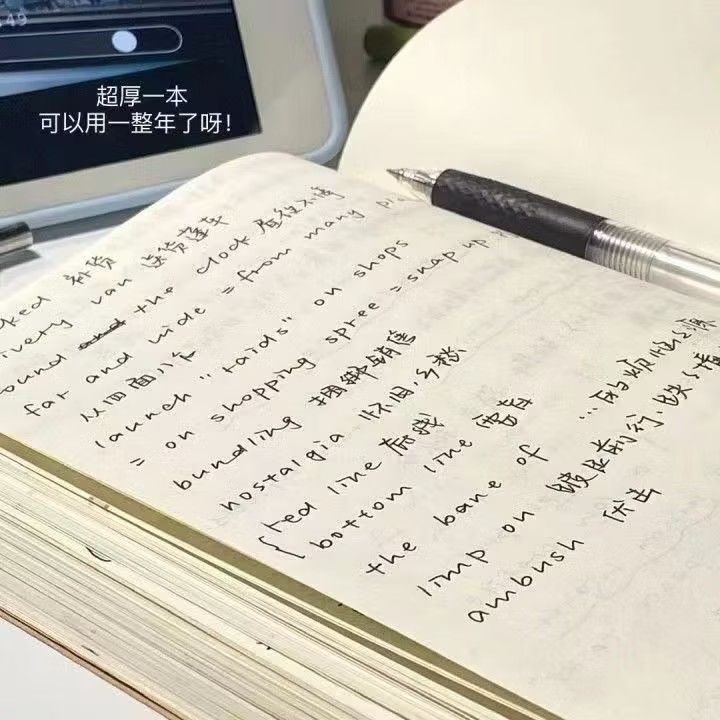 超厚一本
可以用一整年了呀!
补货
van 送货
the clock 昼夜不停
far and wide = from many
从四面八方
launch "raids" on shops
= on shopping spree = snap up
bundling 捆绑销售
nostalgia 怀旧,乡愁
red line
bottom line
the bane of ...的烦恼之源
limp on 跛足前行
ambush 伏击